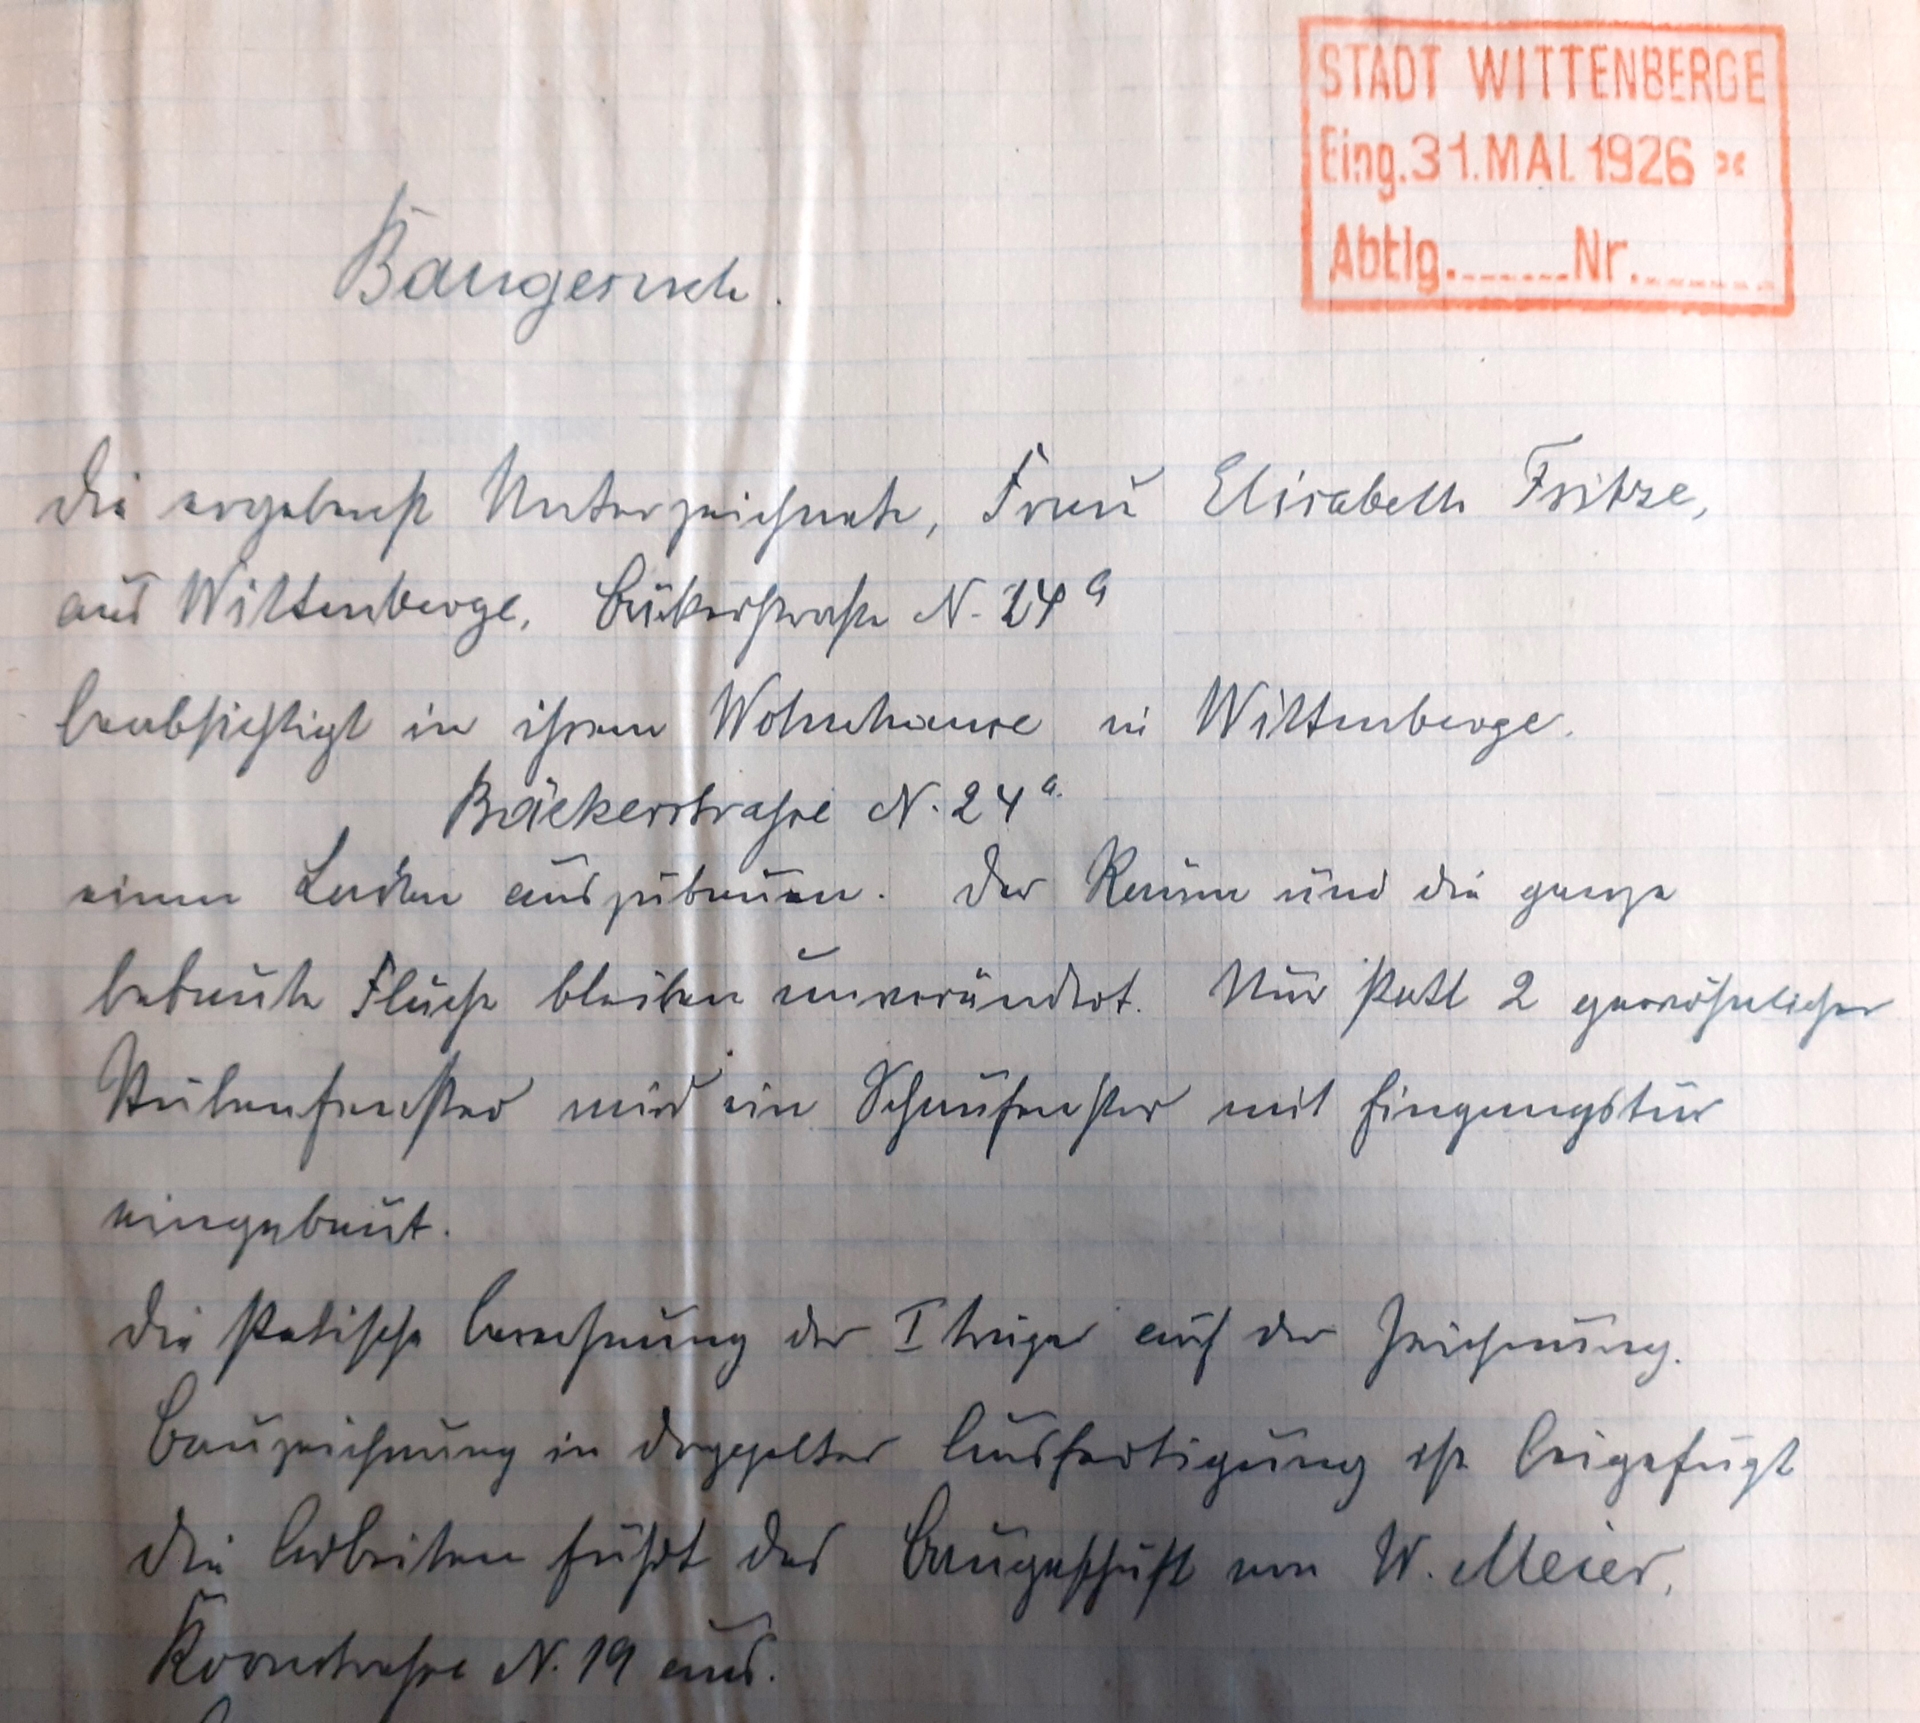 STADT WITTENBERGE
Eing. 31. MAI. 1926
Abtlg.......Nr........
Baugesuch.
Die ergebenst Unterzeichnete, Frau Elisabeth Fritze,
aus Wittenberge, Bäckerstraße N. 24 a
beabsichtigt in ihrem Wohnhause in Wittenberge.
Bäckerstrahse N. 24 a.
einen Laden auszubauen. Der Raum und die ganze
bebaute Fläche bleiben unverändert. Nur statt 2 gewöhnlicher
Stubenfenster wird ein Schaufenster mit Eingangstür
eingebaut.
Die statische Berechnung der I träger auf der Zeichnung.
Bauzeichnung in doppelter Ausfertigung ist beigefügt
Die Arbeiten führt das Baugeschäft von W. Meier,
N. 19 aus.